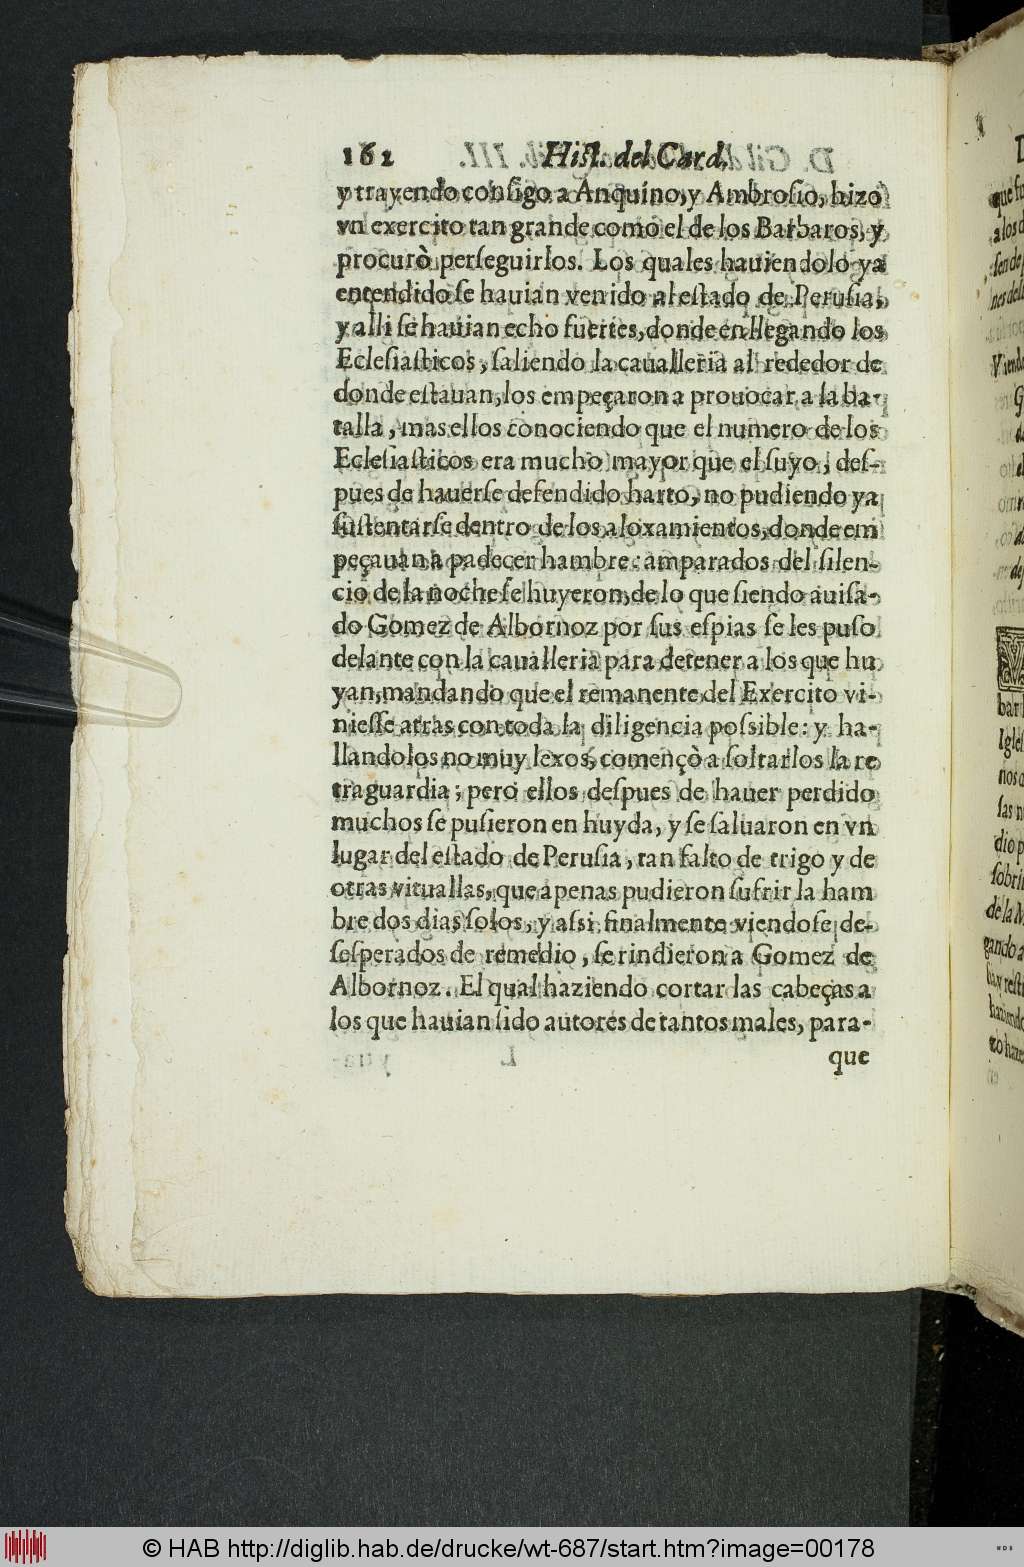 162 Hiſt. del Card.
y trayendo conſigo a Anquino, y Ambroſio, hizo
vn exercito tan grande como el de los Barbaros, y
procurò perſeguirlos. Los quales hauiendolo ya
entendido ſe hauian venido al eſtado de Peruſia,
y alli ſe hauian echo fuertes, donde en llegando los
Ecleſiaſticos, ſaliendo la caualleria al rededor de
donde eſtauan, los empeçaron a prouocar a la ba-
talla, mas ellos conociendo que el numero de los
Ecleſiaſticos era mucho mayor que el ſuyo, deſ-
pues de hauerſe defendido harto, no pudiendo ya
ſuſtentarſe dentro de los aloxamientos, donde em
peçauan a padecer hambre: amparados del ſilen-
cio de la noche ſe huyeron, de lo que ſiendo auiſa-
do Gomez de Albornoz por ſus eſpias ſe les puſo
delante con la caualleria para detener a los que hu
yan, mandando que el remanente del Exercito vi-
nieſſe atras con toda la diligencia poſsible: y ha-
llandolos no muy lexos, començò a ſoltarlos la re
traguardia; pero ellos deſpues de hauer perdido
muchos ſe puſieron en huyda, y ſe ſaluaron en vn
lugar del eſtado de Peruſia, tan falto de trigo y de
otras vituallas, que apenas pudieron ſufrir la ham
bre dos dias ſolos, y aſsi finalmente viendoſe de-
ſeſperados de remedio, ſe rindieron a Gomez de
Albornoz. El qual haziendo cortar las cabeças a
los que hauian ſido autores de tantos males, para-
que
© HAB http://diglib.hab.de/drucke/wt-687/start.htm?image=00178